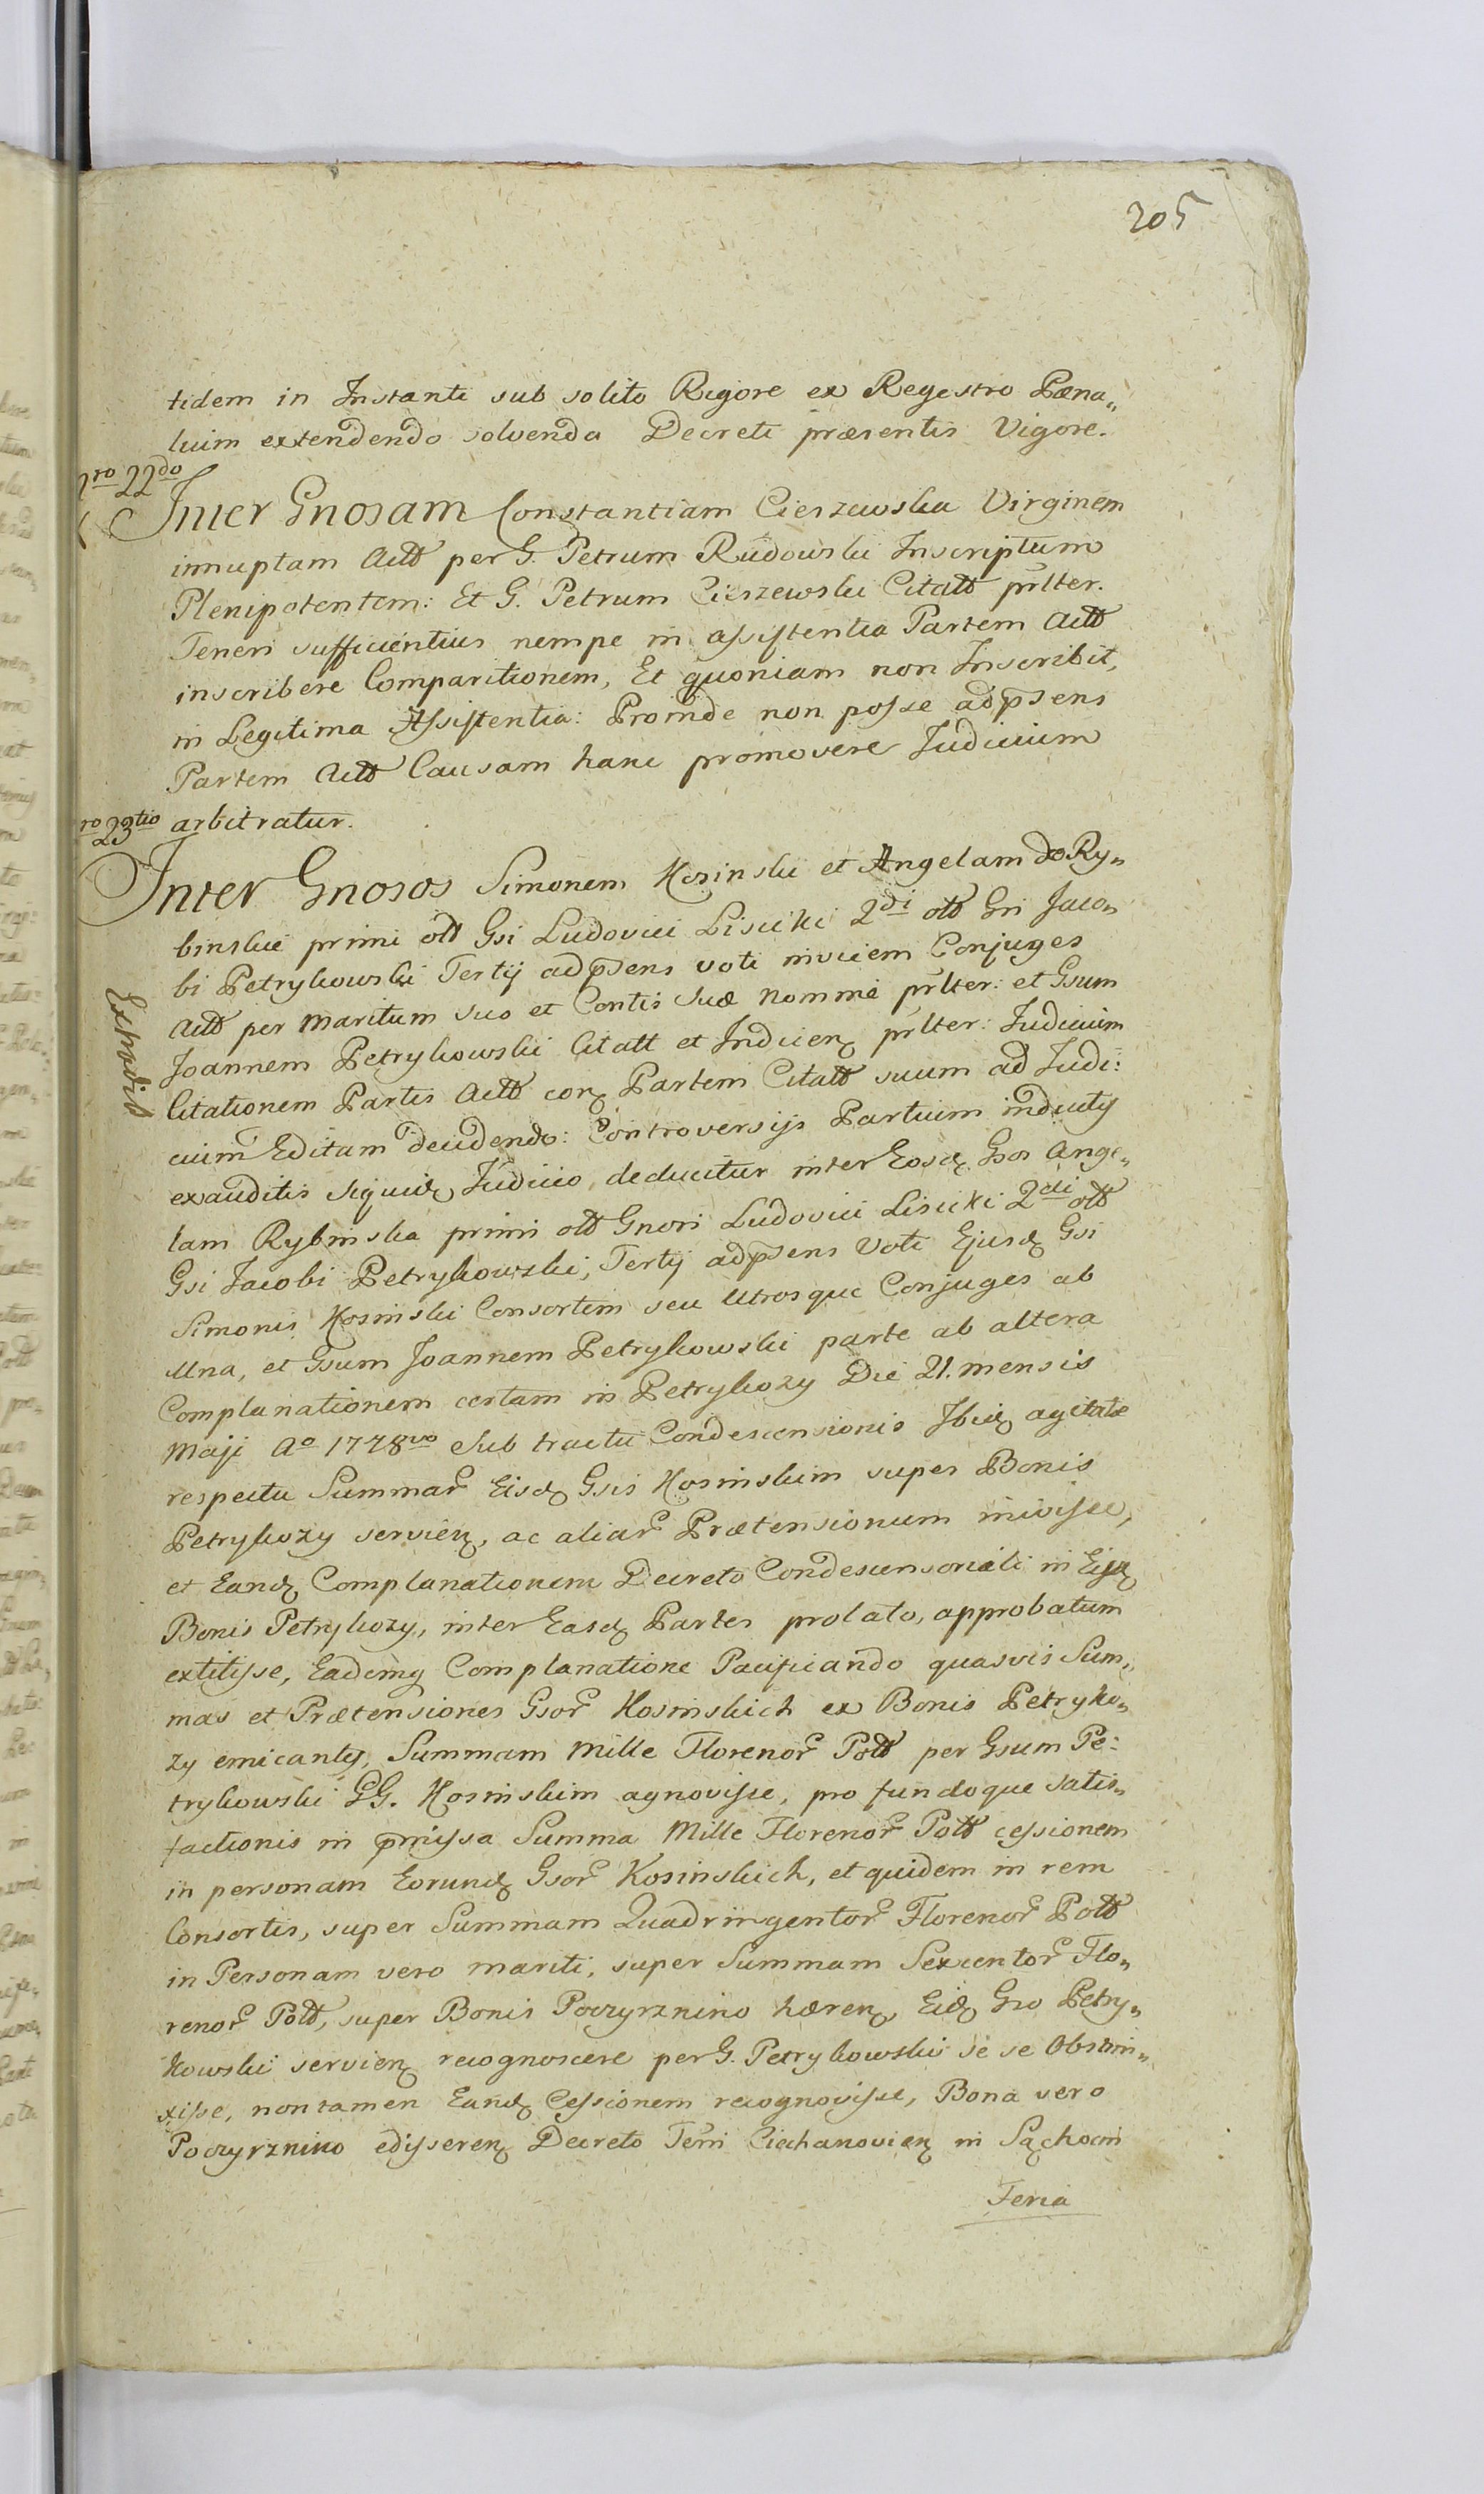 205
tidem in Instanti sub solito Rigore ex Regestro Pœna„
lium extendendo solvenda Decreti præsentis Vigore.
22do
Inter Gnosam Constantiam Cierzewska Virginem
innuptam Actt per G. Petrum Rudowski Inscriptum
Plenipotentem: Et G. Petrum Cierzewski Citatt prlter.
Teneri sufficientius nempe in assistentia Partem Actt
inscribere Comparitionem, Et quoniam non Inscribit,
in Legitima Assistentia: Proinde non posse adpsens
Partem Actt Causam hanc promovere Judicium
arbitratur.
ro 23tio
Inter Gnosos Simonem Kosinski et Angelam de Ry„
binskie primi ott Gsi Ludovici Lisicki 2di ott Gsi Jaco„
bi Petrykowski Tertij adpsens voti invicem Conjuges
Actt per Maritum suo et Contis suæ Nomine prlter: et Gsum
Joannem Petrykowski Citatt et Indicen prlter: Judicium
Extradit
Citationem Partis Actt con Partem Citatt suum ad Judi:
cium Editam decidendo: Controversijs Partium inductis
exauditis siquid Judicio deducitur inter Eosd Gsos Ange„
lam Rybinska primi ott Gnosi Ludovici Lisicki 2di ott
Gsi Jacobi Petrykowski, Tertij adpsens Voti Ejusd Gsi
Simonis Kosinski Consortem seu Utrosque Conjuges ab
Una, et Gsum Joannem Petrykowski parte ab altera
Complanationem certam in Petrykozy Die 21. mensis
Maji Ao 1778vo Sub tractu Condescensionis Ibid agitatæ
respectu Summar Eisd Gsis Kosinskim super Bonis
Petrykozy servien, ac aliar Prætensionum inivisse,
et Eand Complanationem Decreto Condescensoriali in Eisd
Bonis Petrykozy, inter Easd Partes prolato, approbatum
extitisse, Eademq Complanatione Pacificando quasvis Sum„
mas et Prætensiones Gsor Kosinskich ex Bonis Petryko„
zy emicantes, Summam Mille Florenor Pott per Gsum Pe:
trykowski GG. Kosinskim agnovisse, pro fundoque satis„
factionis in pmissa Summa Mille Florenor Pott cessionem
in personam Eorund Gsor Kosinskich, et quidem in rem
Consortis, super Summam Quadringentor Florenor Pott
in Personam vero mariti, super Summam Sexcentor Flo„
renor Pott, super Bonis Poczyrznino hæren, Eid Gso Petry„
kowski servien recognoscere per G. Petrykowski se se Obstrin„
xisse, non tamen Eand Cessionem recognovisse, Bona vero
Poczyrznino edisseren Decreto Terri Ciechanovien in Sąchocin
Feria